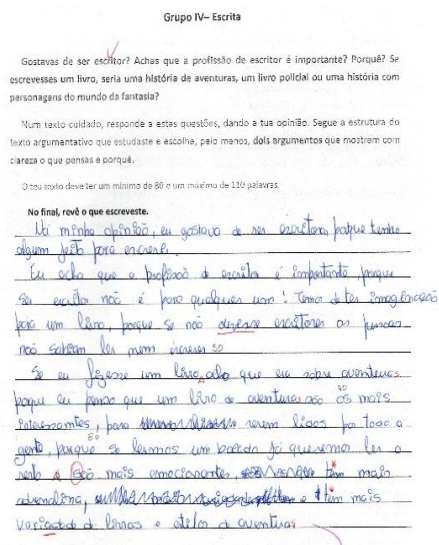 Grupo IV– Escrita
Gostavas de ser escritor? Achas que a profissão de escritor é importante? Porquê? Se
escrevesses um livro, seria uma história de aventuras, um livro policial ou uma história com
personagens do mundo da fantasia?
Num texto cuidado, responde a estas questões, dando a tua opinião. Segue a estrutura do
texto argumentativo que estudaste e escolhe, pelo menos, dois argumentos que mostrem com
clareza o que pensas e porquê.
O teu texto deve ter um mínimo de 80 e um máximo de 110 palavras.
No final, revê o que escreveste.
Na minha opinião, eu gostava de ser escritora, porque tenho
algum jeito para escrever.
Eu acho que a profissão de escritor é importante, porque
ser escritor não é para qualquer um! Temos de ter imaginação
para um livro, porque se não escritores as pessoas
não sabiam ler nem escrever 50
Se eu fizesse um livro, acho que era sobre aventuras
porque eu penso que um livro de aventuras são os mais 70
interessantes, para serem lidos por toda a
gente, porque se lermos um bocado já queremos ler o 80
resto são mais emocionantes, têm mais
adrenalina, e têm mais
variedade de livros e de aventuras